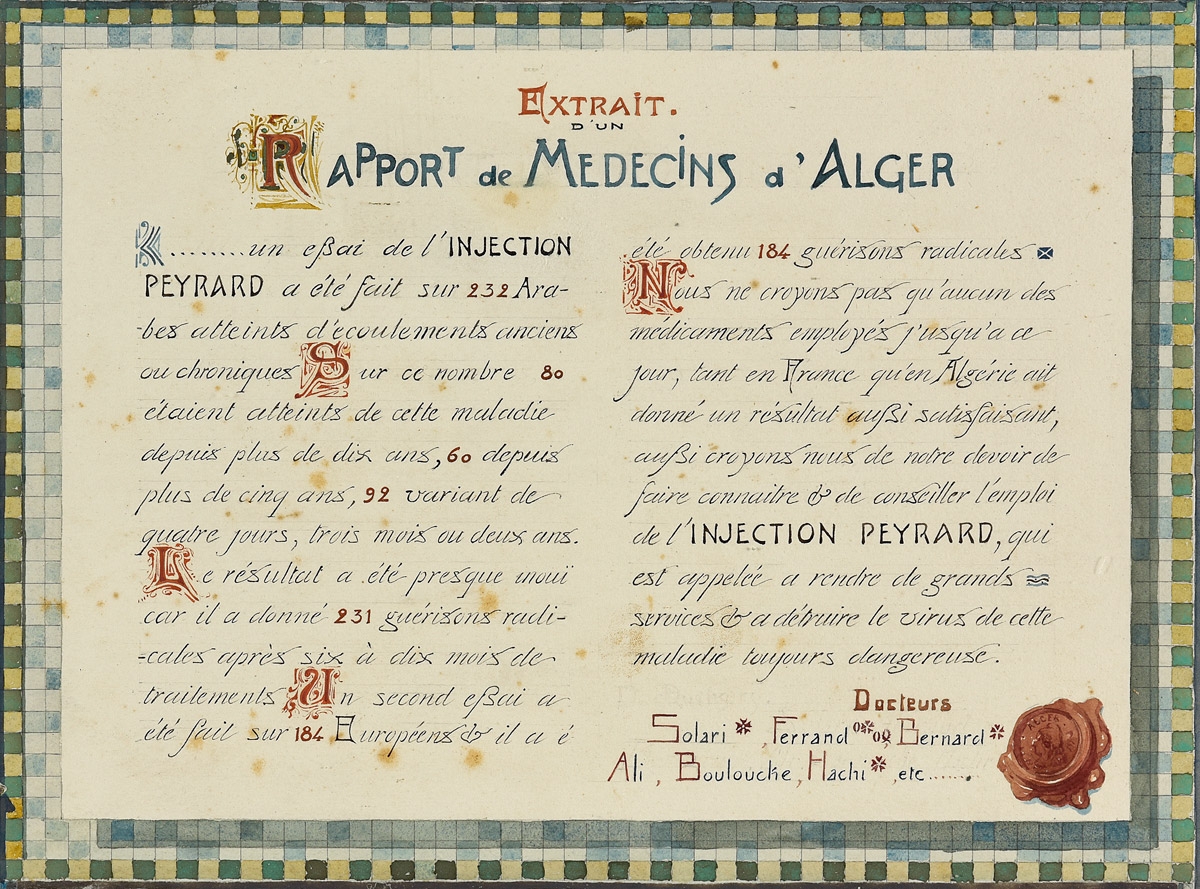 EXTRAIT.
D'UN
RAPPORT de MEDECINS d'ALGER
.........un eßai de l'INJECTION
PEYRARD a été fait sur 232 Ara-
-bes atteints d'écoulements anciens
ou chroniques Sur ce nombre 80
étaient atteints de cette maladie
depuis plus de dix ans, 60 depuis
plus de cinq ans, 92 variant de
quatre jours, trois mois ou deux ans.
Le résultat a été presque inouï
car il a donné 231 guérisons radi-
-cales après six à dix mois de
traitements Un second eßai a
été fait sur 184 Européens & il a é
été obtenu 184 guérisons radicales
Nous ne croyons pas qu'aucun des
médicaments employés j'usqu'a ce
jour, tant en France qu'en Algérie ait
donné un résultat außi satisfaisant,
außi croyons nous de notre devoir de
faire connaitre & de conseiller l'emploi
de l'INJECTION PEYRARD, qui
est appelée a rendre de grands
services & a détruire le virus de cette
maladie toujours dangereuse.
Docteurs
Solari , Ferrand Bernard
Ali , Bouloucke, Hachi , etc......
ALGER